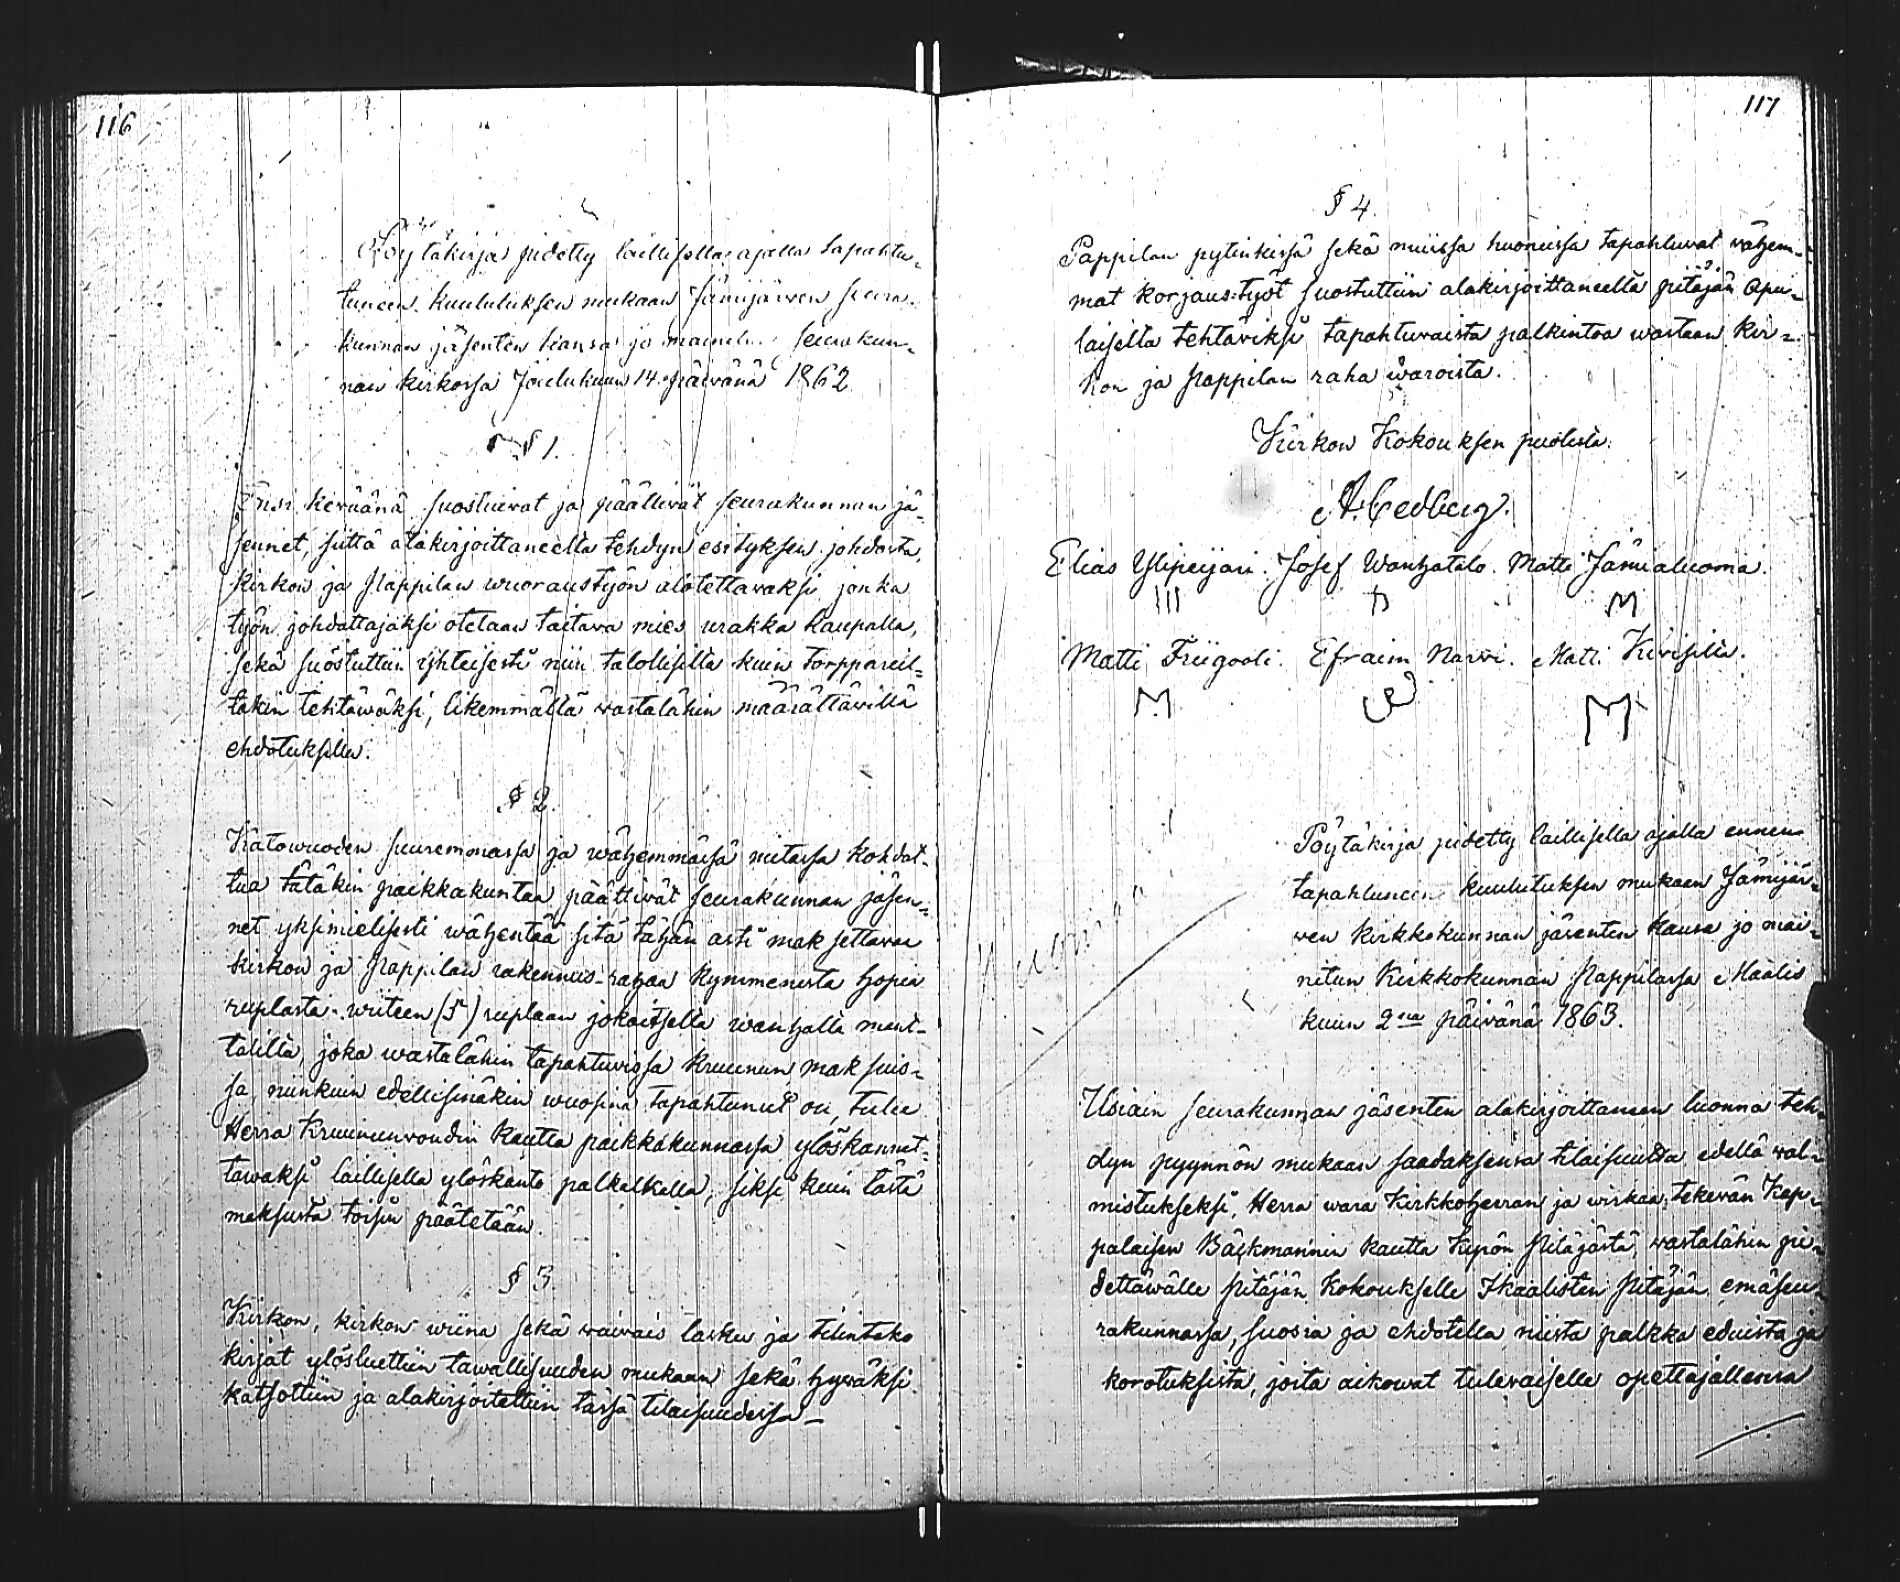 116
Pöytäkirja pidetty laillisella ajalla tapahtu-
tuneen kuulutuksen mukaan Jämijärwen seura-
kunnan jäsenten kansa jo mainitun seurakun-
nan kirkossa Joulukuun 14. päivänä 1862
§ 1.
Ensi keväänä suostuivat ja päättivät seurakunnan jä-
sennet, siitä alakirjoittaneelta tehdyn esityksen johdosta,
kirkon ja Pappilan wuoraustyön alotettavaksi jonka
työn johdattajaksi otetaan taitava mies urakka kaupalla,
sekä suostuttiin yhteisesti niin talollisilta kuin torppareil-
takin tehtäwäksi, likemmältä wastalähin määrättävillä
ehdotuksilla.
§ 2.
Katowuoden suuremmassa ja wähemmässä mitassa kohdat-
tua tätäkin paikkakuntaa, päättivät seurakunnan jäsen-
net yksimielisesti wähentää sitä tähän asti maksettavaa
kirkon ja Pappilan rakennus-rahaa kymmenestä hopea
ruplasta wiiteen (5) ruplaan jokaitsella wanhalla mant-
talilla, joka wastalähin tapahtuvissa kruunun maksuis-
sa, niinkuin edellisinäkin wuosina tapahtunut on, tulee
Herra Kruununvoudin kautta paikkakunnassa ylöskannet-
tawaksi laillisella ylöskanto palkalkalla, siksi kuin tästä
maksusta toisin päätetään.
§ 3.
Kirkon, kirkon wiina sekä waivais lasku ja tilinteko
kirjat ylösluettiin tawallisuuden mukaan sekä hywäksi
katsottiin ja alakirjoitettiin tässä tilaisuudessa –
117
§ 4.
Pappilan pytinkissä sekä muissa huoneissa tapahtuvat vähem-
mät korjaus-työt suostuttiin alakirjoittaneelta pitäjän apu-
laiselta tehtäviksi tapahtuvaista palkintoa wastaan kir-
kon ja Pappilan raha waroista.
Kirkon Kokouksen puolesta:
A. Cedberg.
Elias Ylipeijari. Josef Wanhatalo. Matti Jämialuoma.
M
Matti Friigooli. Efraim Narvi. Matti Kivisilta.
M M
Pöytäkirja pidetty laillisella ajalla ennen
tapahtuneen kuulutuksen mukaan Jämijär-
wen kirkkokunnan jäsenten kansa jo mai-
nitun Kirkkokunnan Pappilassa Maalis
kuun 2na päivänä 1863.
Usiain seurakunnan jäsenten alakirjoittaneen luonna teh-
dyn pyynnön mukaan saadaksensa tilaisuutta edellä wal-
mistukseksi, Herra wara Kirkkoherran ja wirkaa tekevän Kap-
palaisen Bäckmannin kautta Kupön Pitäjästä, wastalähin pi-
dettäwälle Pitäjän kokoukselle Ikaalisten Pitäjän emäseu-
rakunnassa, suosia ja ehdotella niista palkka eduista ja
korotuksista, joita aikowat tulevaiselle opettajallensa